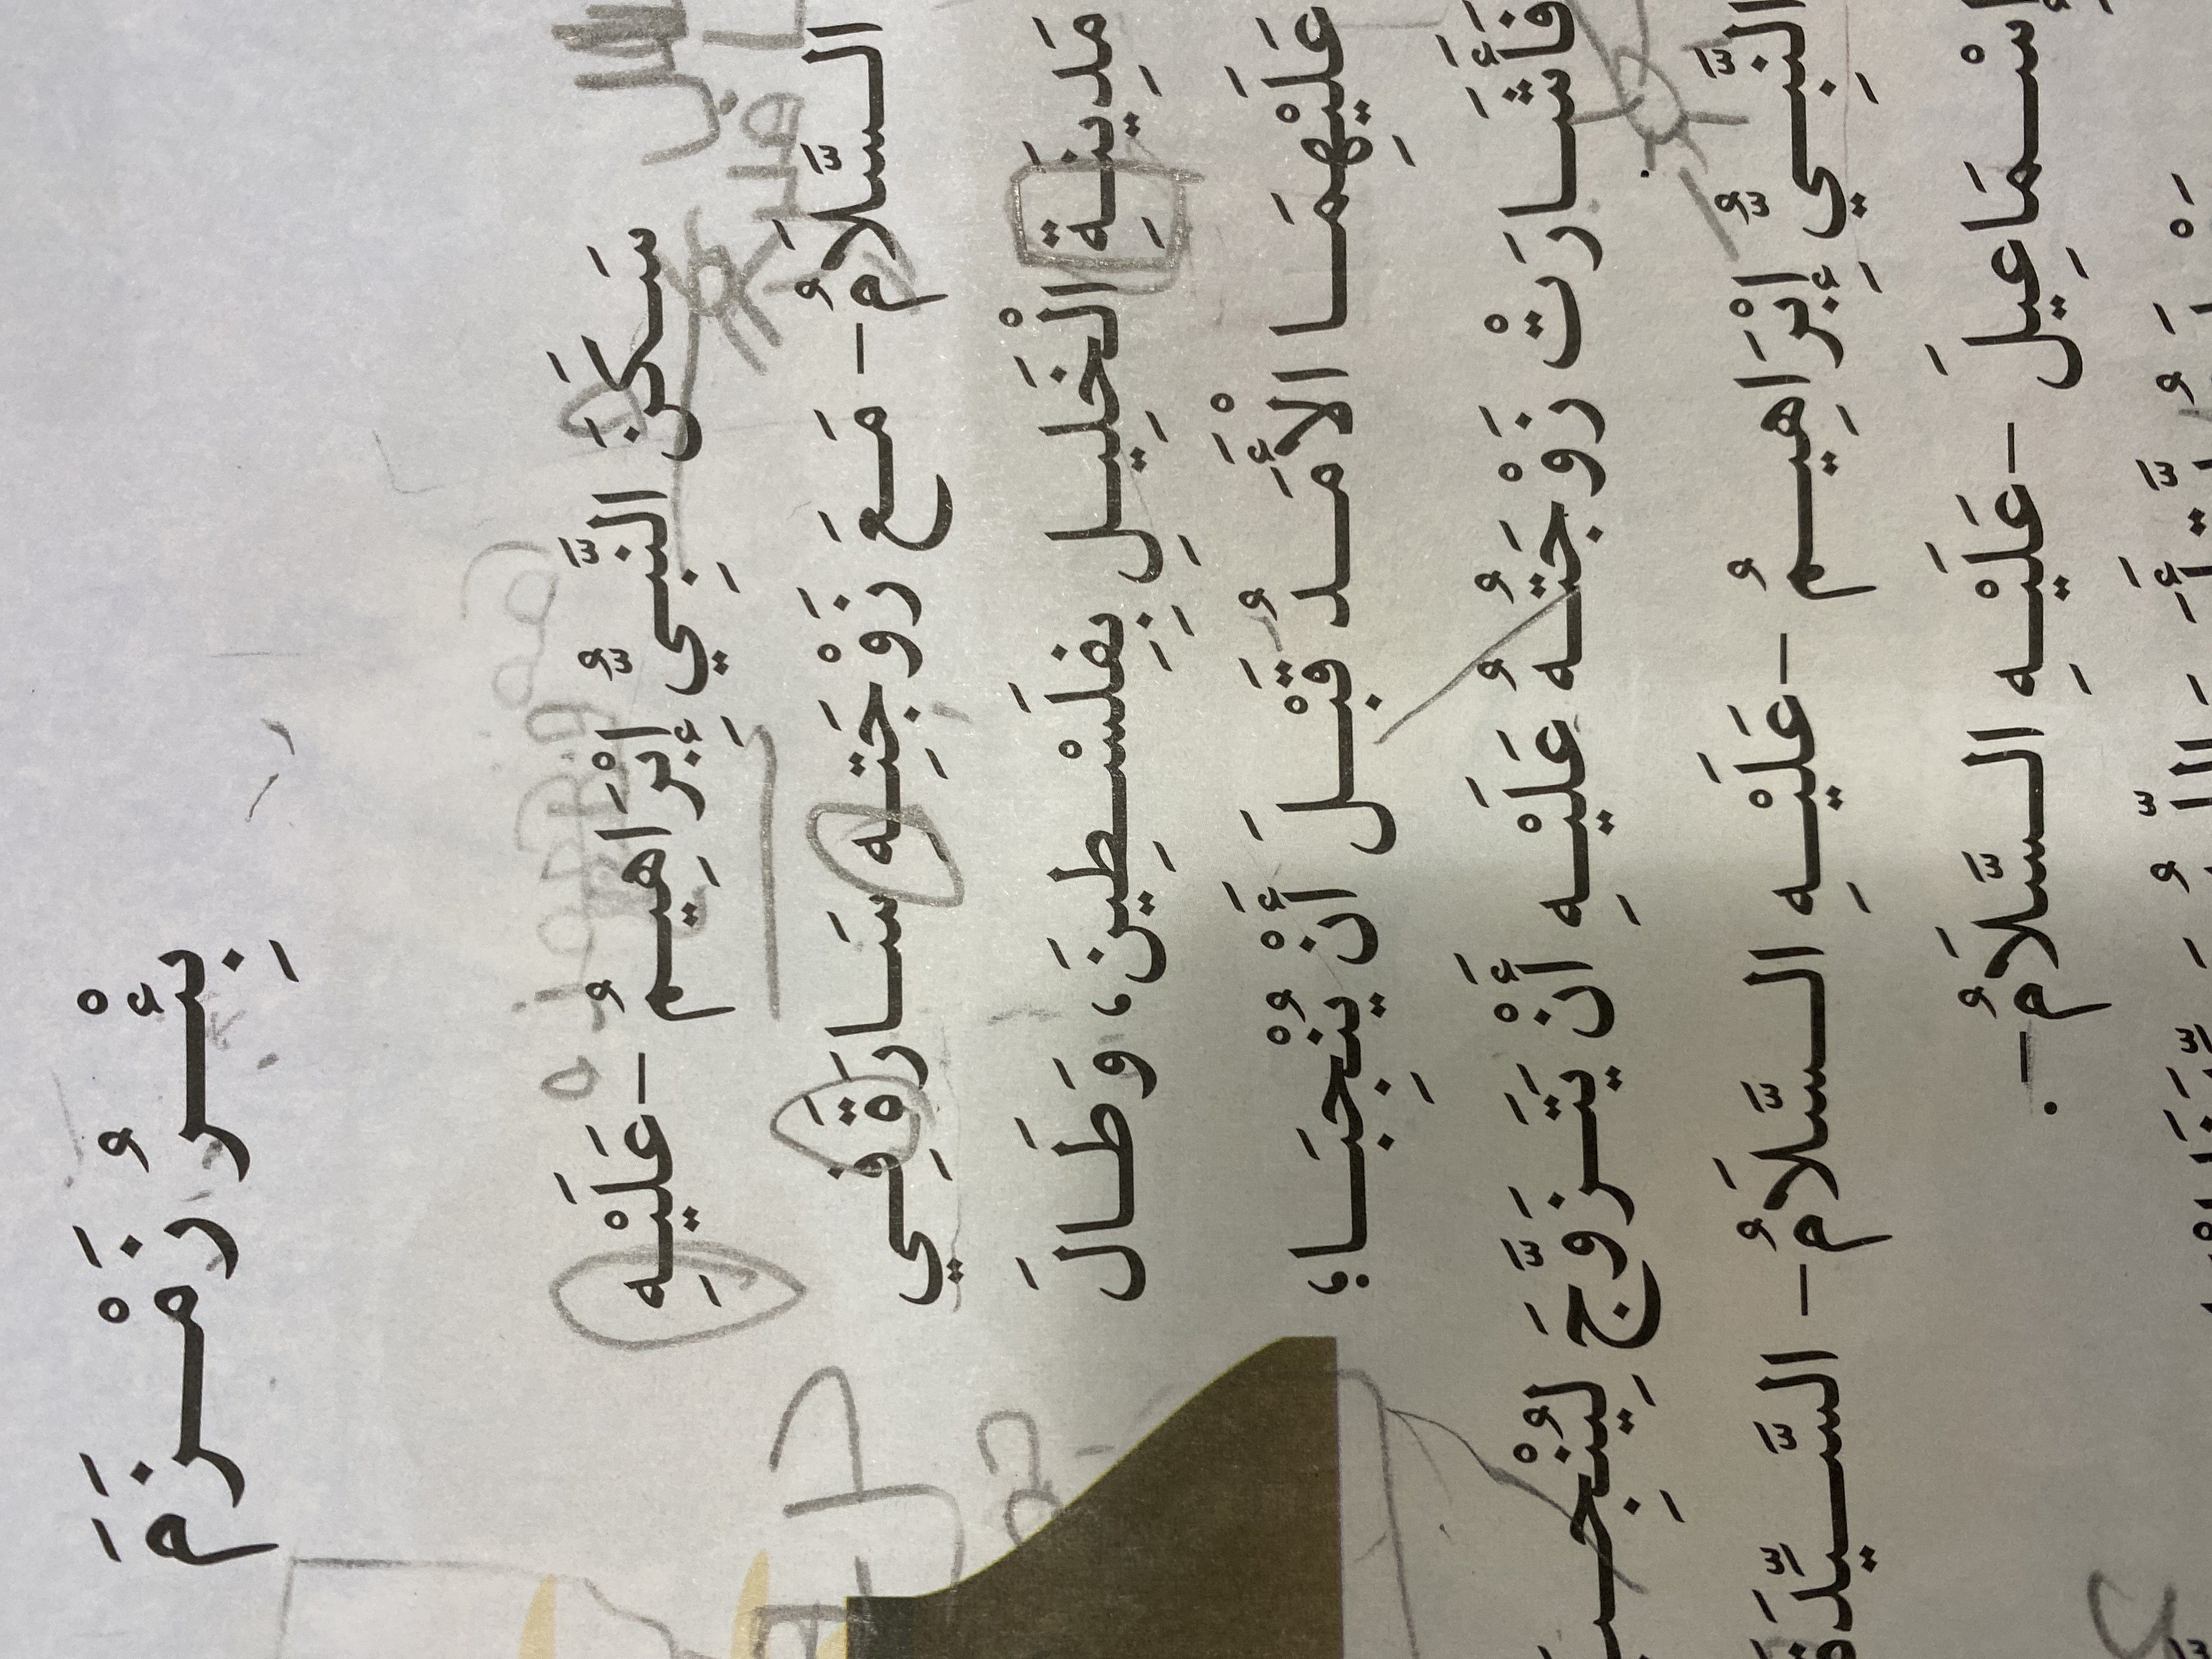 بِئْرُ زَمْزَمَ
سَكَنَ النَّبِيُّ إِبْرَاهِيمُ -عَلَيْهِ
السَّلَامُ- مَعَ زَوْجَتِهِ سَارَةَ فِي
مَدِينَةِ الْخَلِيلِ بِفِلَسْطِينَ، وَطَالَ
عَلَيْهِمَا الْأَمَدُ قَبْلَ أَنْ يُنْجِبَا؛
فَأَشَارَتْ زَوْجَتُهُ عَلَيْهِ أَنْ يَتَزَوَّجَ لِيُنْجِبَ
النَّبِيُّ إِبْرَاهِيمُ -عَلَيْهِ السَّلَامُ- السَّيِّدَةَ
إِسْمَاعِيلَ -عَلَيْهِ السَّلَامُ-.